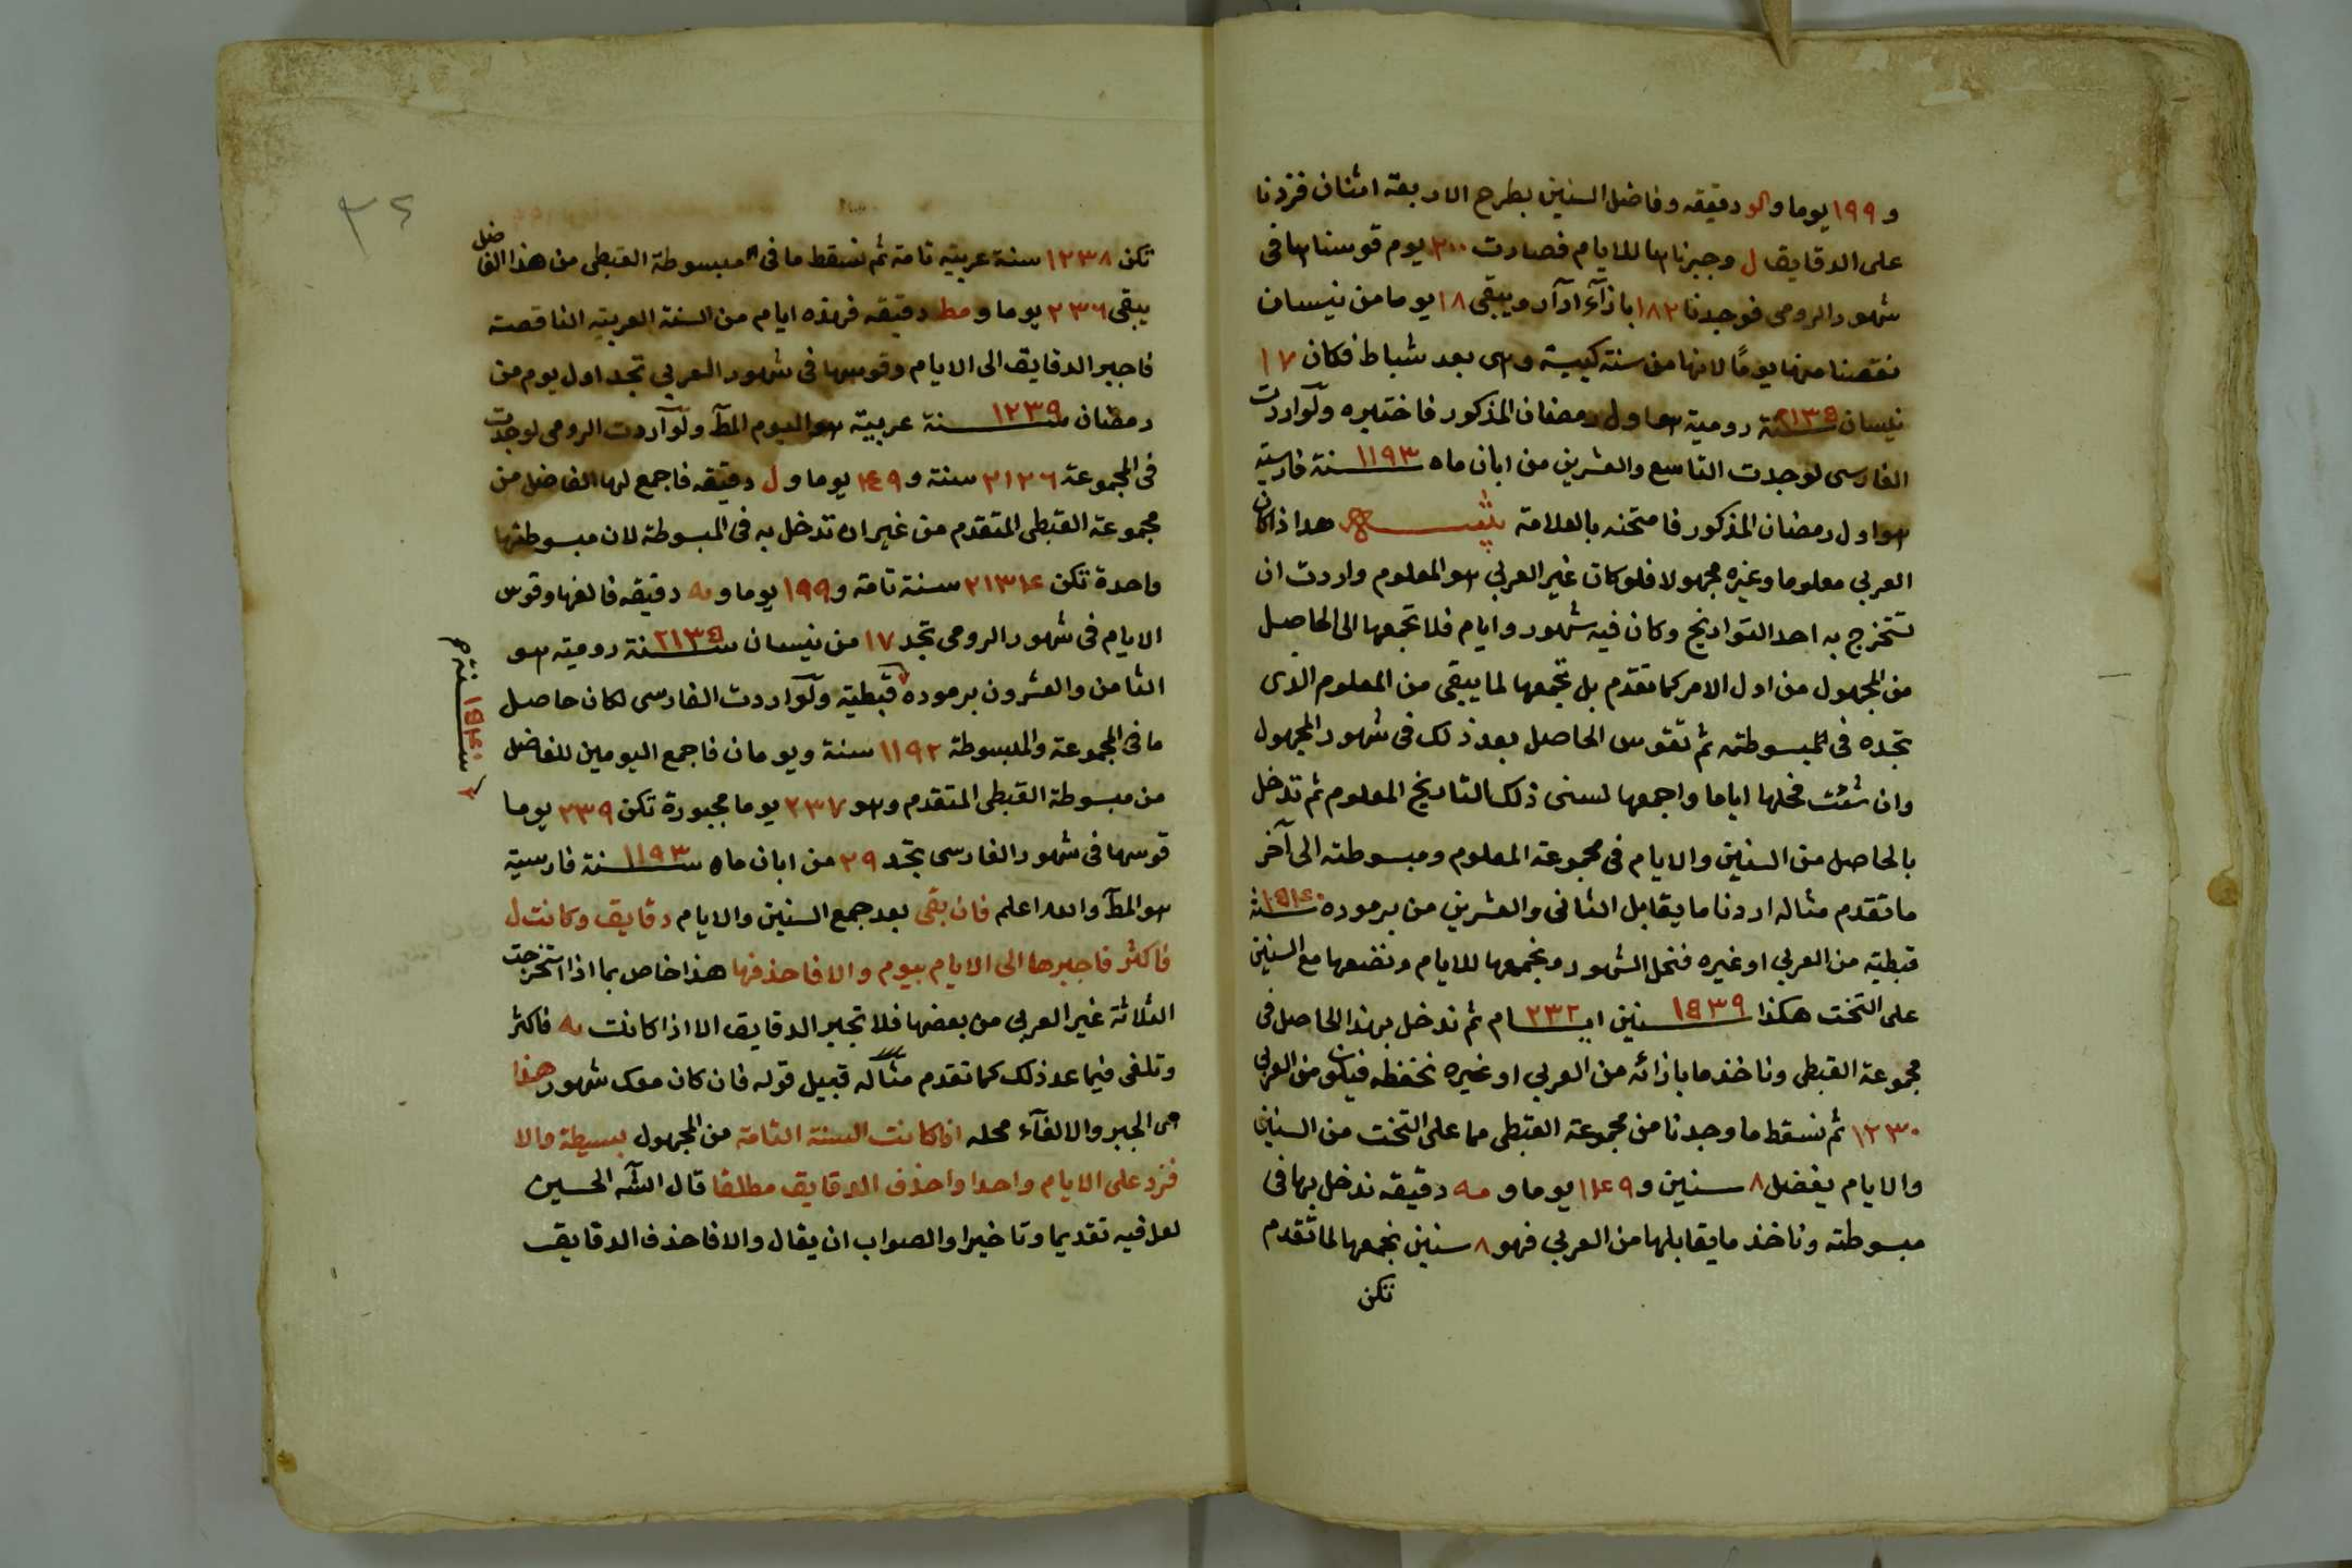 و ١٩٩ يوما و دقيقه وفاضل السنين بطرح الاربعة اثنان فزدنا
على الدقايق ل وجبرناها للايام فصارت ٢٠٠ يوم قوسناها فى
شهور الرومى فوجدنا ١٨٢ بازآء ادآر ويبقى ١٨ يوما من نيسان
نقصنا منها يومًا لانها من سنة كبيسة وهى بعد شباط فكان ١٧
نيسان سنة ٢١٣٥ رومية هو اول رمضان المذكور فاختبره ولو اردت
الفارسى لوجدت التاسع والعشرين من ابان ماه سنة ١١٩٣ فارسية
هو اول رمضان المذكور فامتحنه بالعلامة هذا اذا كان
العربي معلوما وغيره مجهولا فلو كان غير العربي هو المعلوم واردت ان
تستخرج به احد التواريخ وكان فيه شهور وايام فلا تجمعها الى الحاصل
من المجهول من اول الامر كما تقدم بل تجمعها لما يبقى من المعلوم الذى
تجده فى المبسوطته ثم تقوس الحاصل بعد ذلك فى شهور المجهول
وان شئت فحلها اياما واجمعها لسنى ذلك التاريخ المعلوم ثم تدخل
بالحاصل من السنين والايام فى مجموعة المعلوم ومبسوطته الى آخر
ما تقدم مثاله اردنا ما يقابل الثانى والعشرين من برموده سنة ١٥٤٠
قبطية من العربي او غيره فنحل الشهور ونجمعها للايام ونضعها مع السنين
على التخت هكذا سنين ١٥٣٩ ايام ٢٣٢ ثم ندخل بهذا الحاصل فى
مجموعة القبطى وناخذ ما بازائه من العربي او غيره نحفظه فيكون من العربي
١٢٣٠ ثم نسقط ما وجدنا من مجموعة القبطى مما على التخت من السنين
والايام يفضل ٨ سنين و ١٤٩ يوما و مه دقيقه ندخل بها فى
مبسوطته وناخذ ما يقابلها من العربي فهو ٨ سنين نجمعها لما تقدم
تكن
٣٤
تكن ١٢٣٨ سنة عربية تامة ثم نسقط ما فى المبسوطة القبطى من هذا الفاضل
يبقى ٢٣٦ يوما و مط دقيقه فهذه ايام من السنة العربية الناقصة
فاجبر الدقايق الى الايام وقوسها فى شهور العربي تجد اول يوم من
رمضان سنة ١٢٣٩ عربية هو اليوم المط ولو اردت الرومى لوجدت
فى المجموعة ٢١٢٦ سنة و ٤٩ يوما و ل دقيقه فاجمع لها الفاضل من
مجموعة القبطى المتقدم من غير ان تدخل به فى المبسوطة لان مبسوطتها
واحدة تكن ٢١٣٤ سنة تامة و ١٩٩ يوما و يه دقيقه فالغها وقوس
الايام فى شهور الرومى تجد ١٧ من نيسان سنة ٢١٣٥ رومية هو
الثامن والعشرون برموده قبطية ولو اردت الفارسى لكان حاصل
سنة ١٥٤٠
ما فى المجموعة والمبسوطة ١١٩٢ سنة ويومان فاجمع اليومين للفاضل
من مبسوطة القبطى المتقدم وهو ٢٣٧ يوما مجبورة تكن ٢٣٩ يوما
قوسها فى شهور الفارسى تجد ٢٩ من ابان ماه سنة ١١٩٣ فارسية
هو المط والله اعلم فان بقى بعد جمع السنين والايام دقايق وكانت ل
فاكثر فاجبرها الى الايام بيوم والا فاحذفها هذا خاص بما اذا استخرجت
الثلاثة غير العربي من بعضها فلا تجبر الدقايق الا اذا كانت مه فاكثر
وتلغى فيما عد ذلك كما تقدم مثاله قبيل قوله فان كان معك شهور هذا
اى الجبر والالغآء محله اذا كانت السنة التامة من المجهول بسيطة والا
فزد على الايام واحدا واحذف الدقايق مطلقا قال الشه الحسين
لعل فيه تقديما وتاخيرا والصواب ان يقال والا فاحذف الدقايق